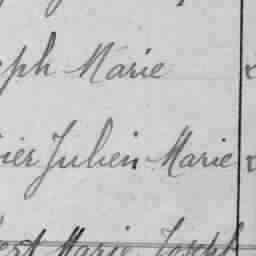 eph Marie
ier Julien Marie
bert Marie Joseph